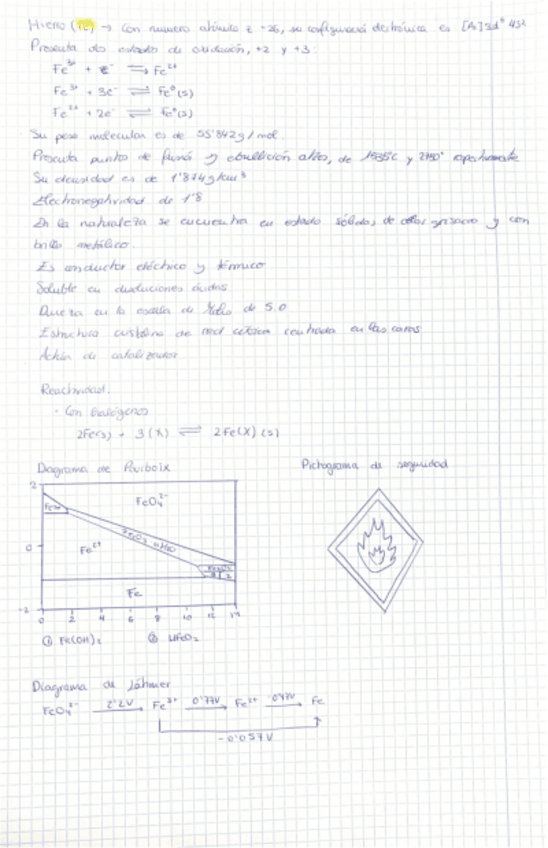 Hierro (Fe) → Con numero atómico z = 26, su configuració electrónica es [Ar]3d⁶ 4s²
Presenta dos estados de oxidación, +2 y +3:
Fe³⁺ + e⁻ ⇌ Fe²⁺
Fe³⁺ + 3e⁻ ⇌ Fe⁰(s)
Fe²⁺ + 2e⁻ ⇌ Fe⁰(s)
Su peso molecular es de 55'842g/mol.
Presenta puntos de fusió y ebullición altos, de 1535ºC y 2750º
Su densidad es de 1'874g/cm³
Electronegatividad de 1'8
En la naturaleza se encuentra en estado sólido, de color grisaceo y con
brillo metálico.
Es conductor eléctrico y térmico
Soluble en disoluciones ácidas
Dureza en la escala de Mohs de 5.0
Estructura cristalina de red cúbica centrada en las caras
Actúa de catalizador
Reactividad.
· Con halógenos
2Fe(s) + 3(X) ⇌ 2Fe(X)(s)
Diagrama de Pourbaix
Pictograma de seguridad
2
FeO₄²⁻
Fe³⁺
Fe²⁺
0
Fe
-2
0 2 4 6 8 10 12 14
① Fe(OH)₂ ② HFeO₂
Diagrama de Látimer
FeO₄²⁻ 2'2V→ Fe³⁺ 0'77V→ Fe²⁺ -0'47V→ Fe
-0'057V